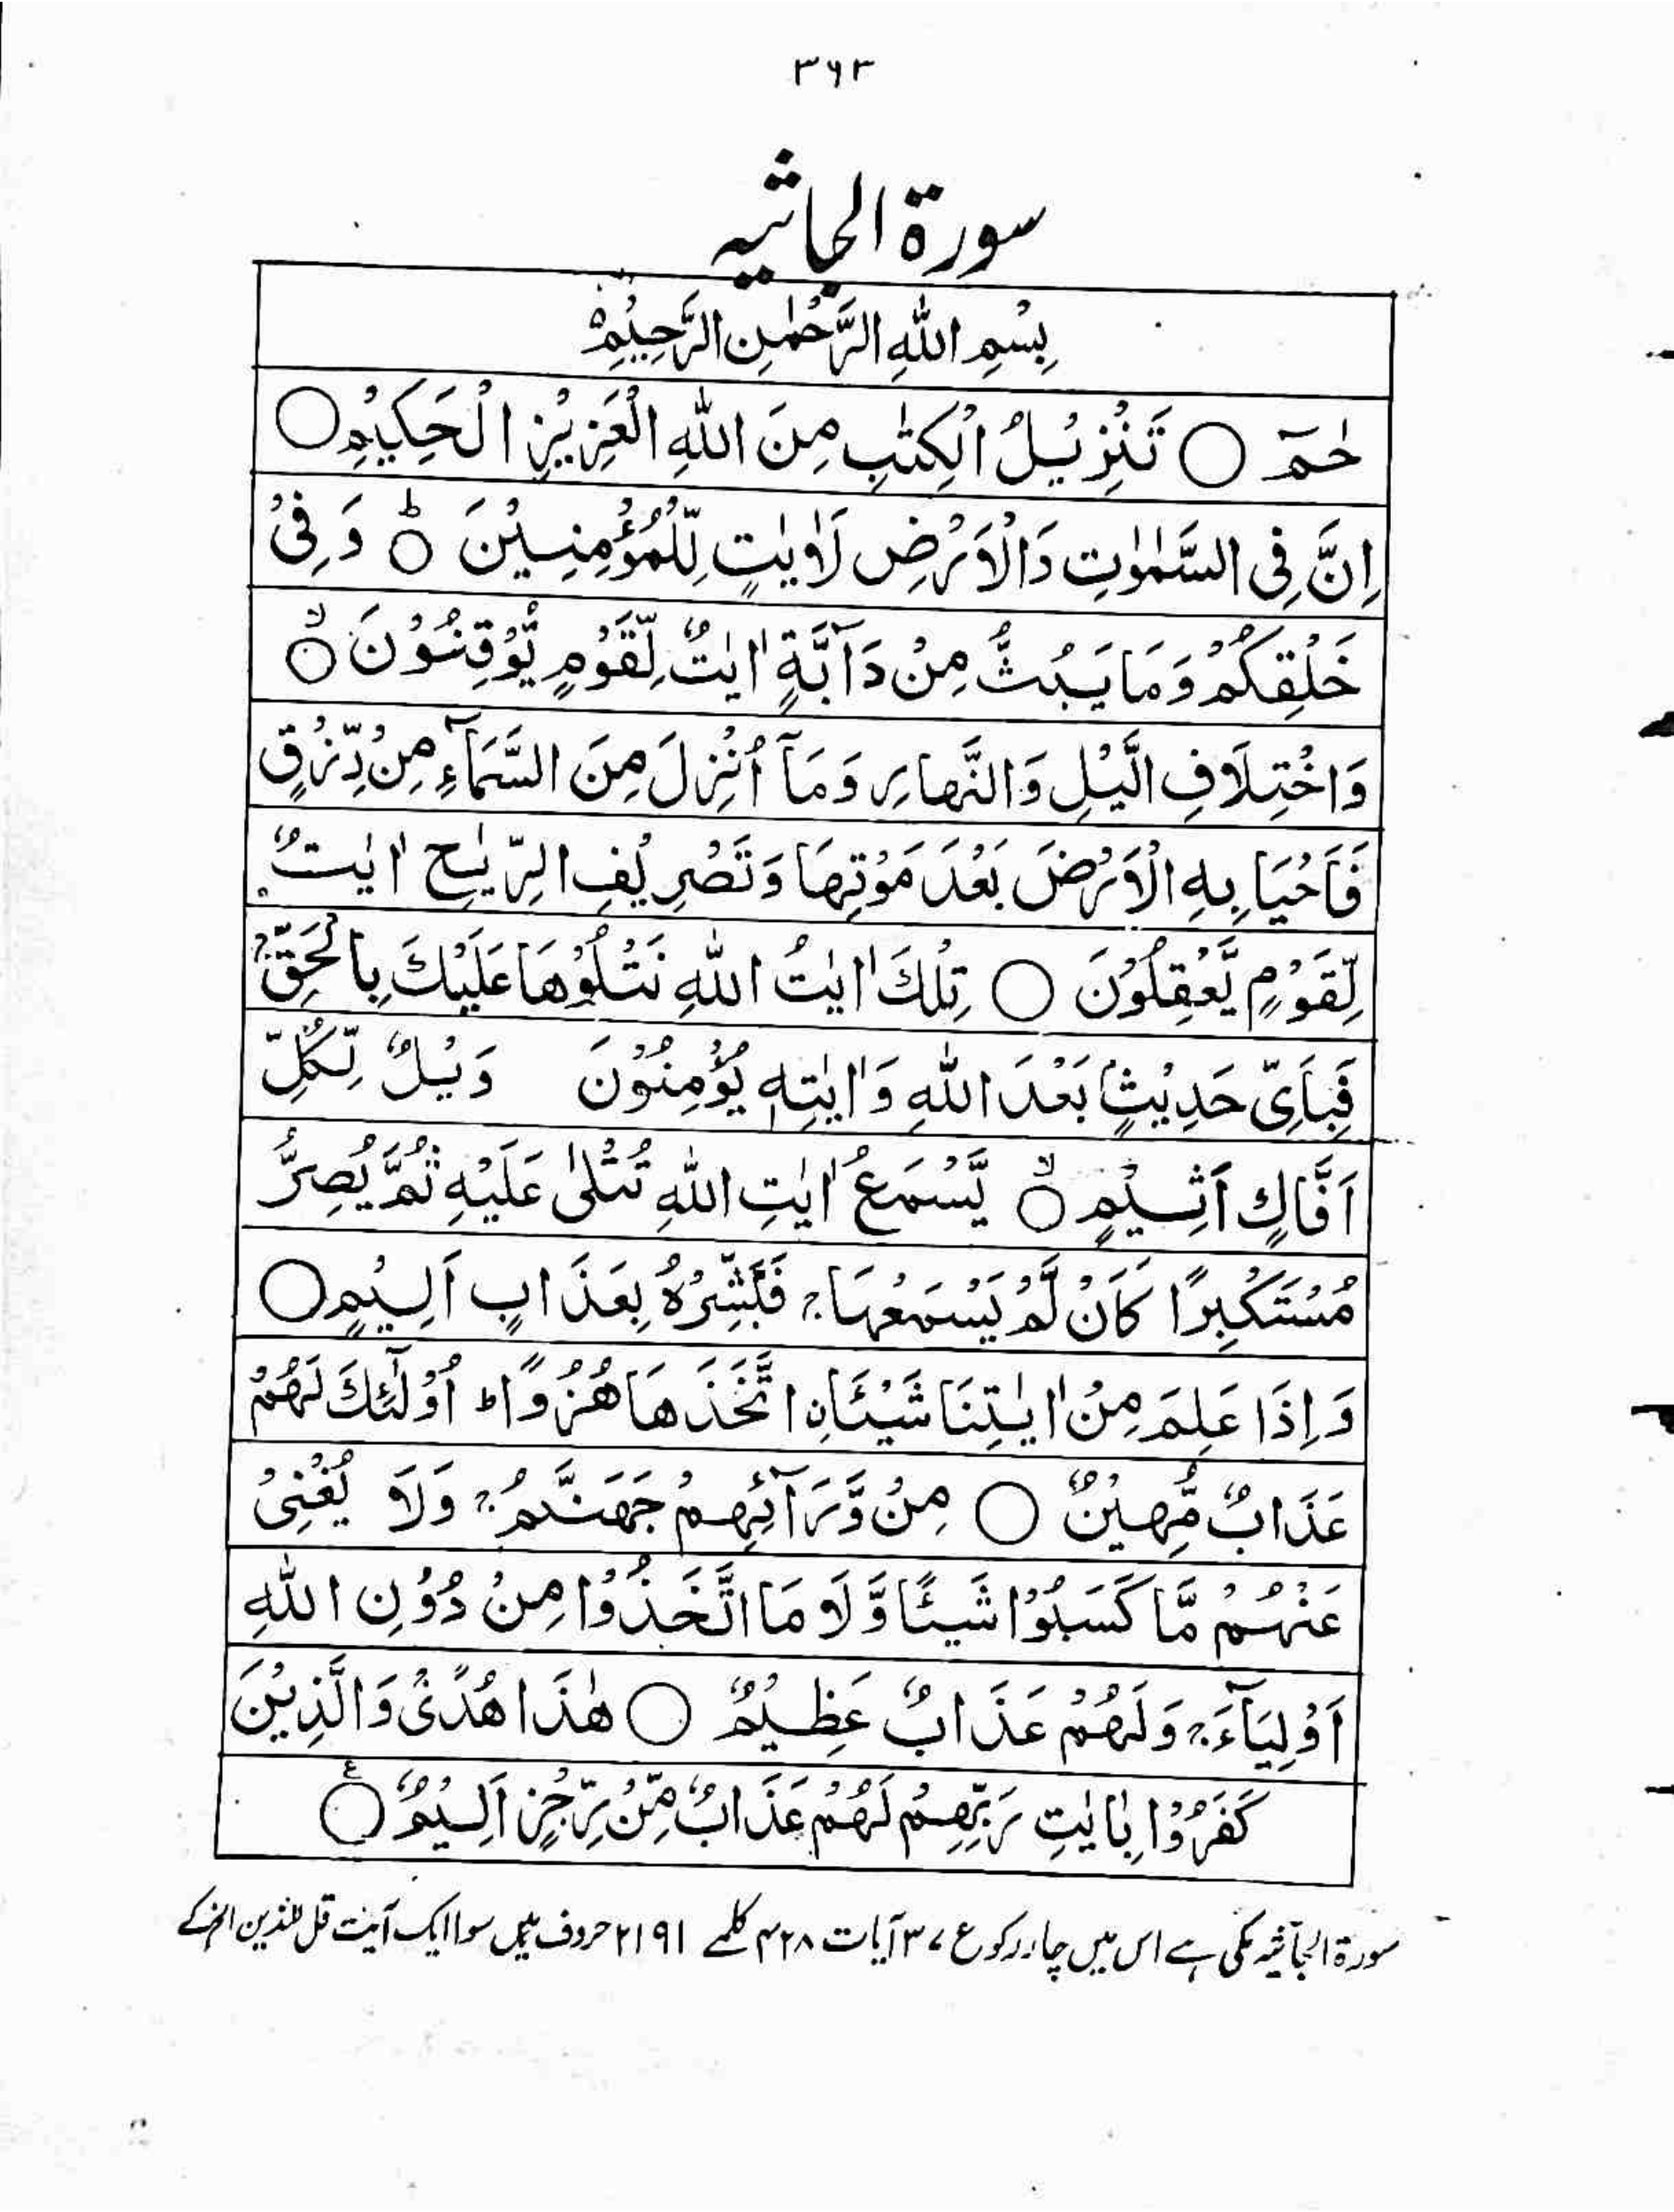 ۳۶۳
سورة الجاثیہ
بِسْمِ اللهِ الرَّحْمٰنِ الرَّحِيْمِ
حٰمٓ ○ تَنْزِيْلُ الْكِتٰبِ مِنَ اللهِ الْعَزِيْزِ الْحَكِيْمِ ○
اِنَّ فِى السَّمٰوٰتِ وَالْاَرْضِ لَاٰيٰتٍ لِّلْمُؤْمِنِيْنَ ○ؕ وَفِىْ
خَلْقِكُمْ وَمَا يَبُثُّ مِنْ دَآبَّةٍ اٰيٰتٌ لِّقَوْمٍ يُّوْقِنُوْنَ ○ۙ
وَاخْتِلَافِ الَّيْلِ وَالنَّهَارِ وَمَآ اُنْزِلَ مِنَ السَّمَآءِ مِنْ رِّزْقٍ
فَاَحْيَا بِهِ الْاَرْضَ بَعْدَ مَوْتِهَا وَتَصْرِيْفِ الرِّيٰحِ اٰيٰتٌ
لِّقَوْمٍ يَّعْقِلُوْنَ ○ تِلْكَ اٰيٰتُ اللهِ نَتْلُوْهَا عَلَيْكَ بِالْحَقِّ ۚ
فَبِاَىِّ حَدِيْثٍ بَعْدَ اللهِ وَاٰيٰتِهٖ يُؤْمِنُوْنَ وَيْلٌ لِّكُلِّ
اَفَّاكٍ اَثِيْمٍ ○ۙ يَّسْمَعُ اٰيٰتِ اللهِ تُتْلٰى عَلَيْهِ ثُمَّ يُصِرُّ
مُسْتَكْبِرًا كَاَنْ لَّمْ يَسْمَعْهَا ۚ فَبَشِّرْهُ بِعَذَابٍ اَلِيْمٍ ○
وَاِذَا عَلِمَ مِنْ اٰيٰتِنَا شَيْئَاِ۟ن اتَّخَذَهَا هُزُوًا ؕ اُولٰٓئِكَ لَهُمْ
عَذَابٌ مُّهِيْنٌ ○ مِنْ وَّرَآئِهِمْ جَهَنَّمُ ۚ وَلَا يُغْنِىْ
عَنْهُمْ مَّا كَسَبُوْا شَيْئًا وَّلَا مَا اتَّخَذُوْا مِنْ دُوْنِ اللهِ
اَوْلِيَآءَ ۚ وَلَهُمْ عَذَابٌ عَظِيْمٌ ○ هٰذَا هُدًى وَالَّذِيْنَ
كَفَرُوْا بِاٰيٰتِ رَبِّهِمْ لَهُمْ عَذَابٌ مِّنْ رِّجْزٍ اَلِيْمٌ ○ع
سورۃ الجاثیہ مکی ہے اس میں چار رکوع ۳۷ آیات ۴۲۸ کلمے ۲۱۹۱ حروف ہیں سوا ایک آیت قل للذین الخ کے